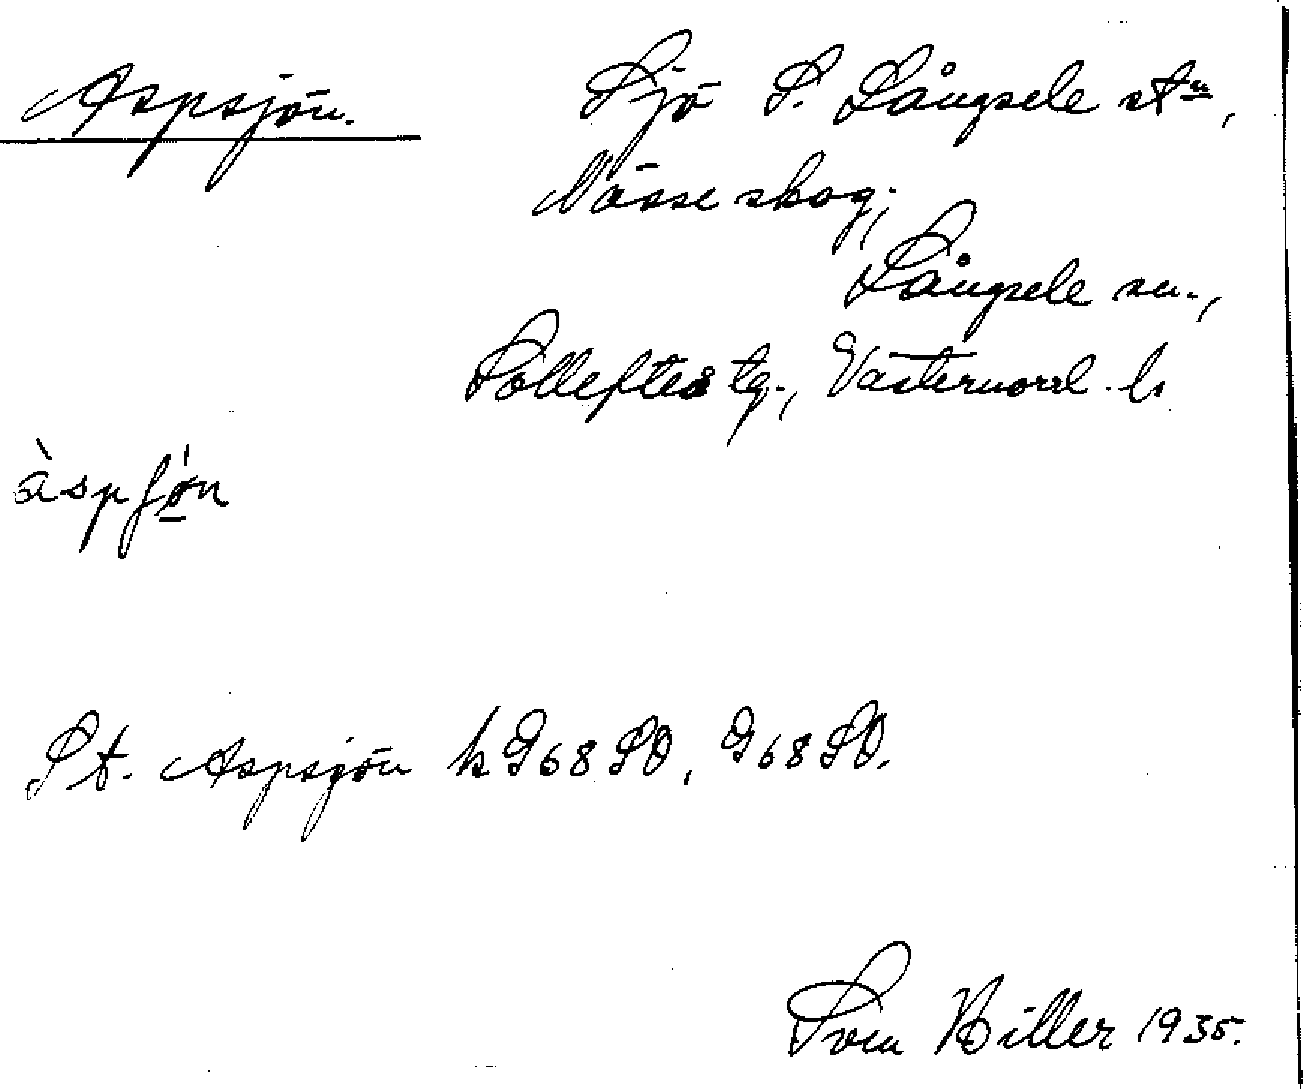 Aspsjön.
Sjö S. Långsele stn,
Nässe skog;
Långsele sn.,
Sollefteå tg., Västernorrl. l.
àspʃø̀n
St. Aspsjön k G68 SO, G68 SO.
Sven Hiller 1935.